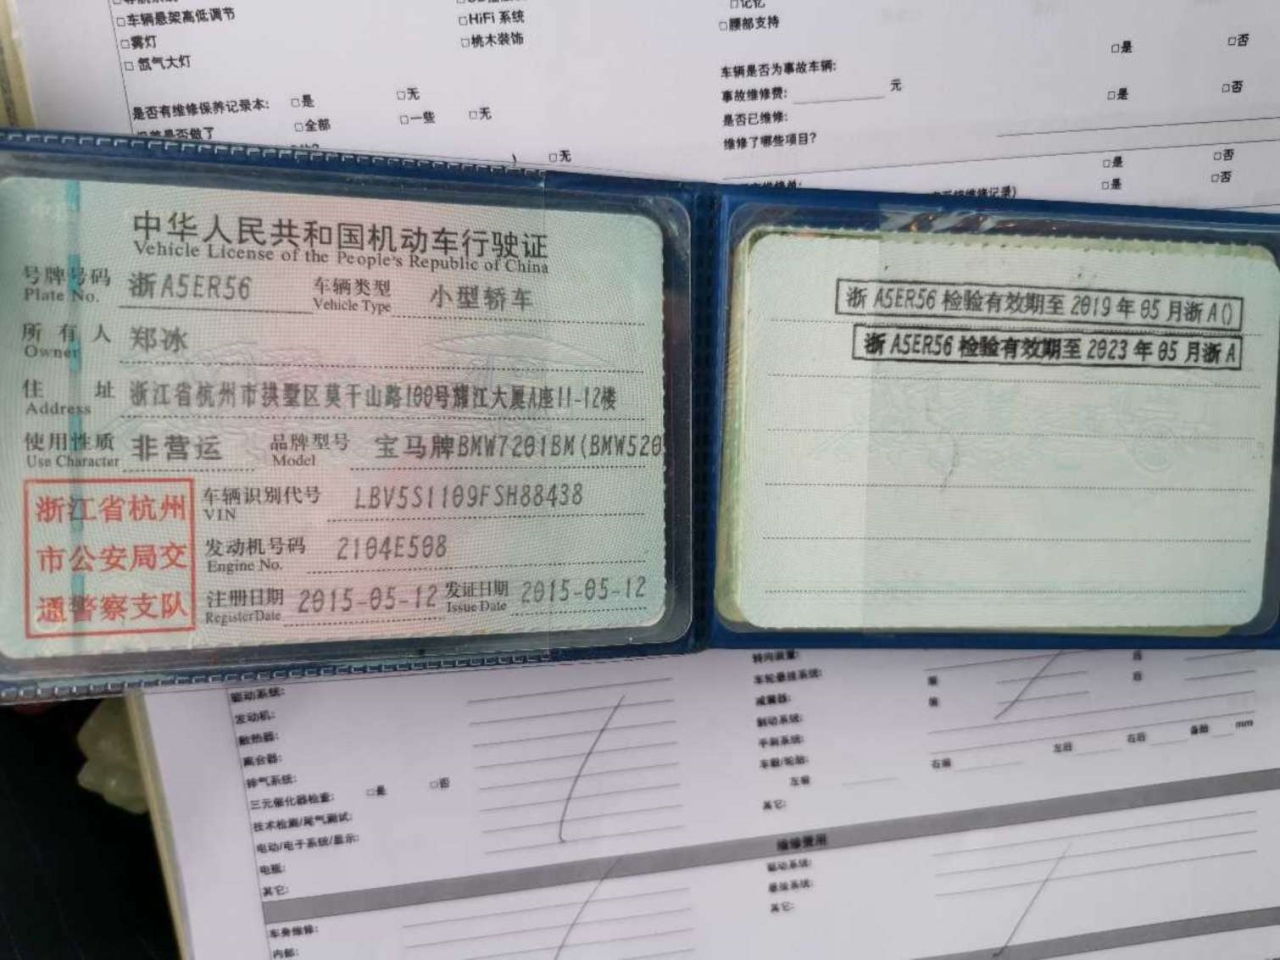 □车辆悬架高低调节
□HiFi 系统
□记忆
□雾灯
□桃木装饰
□腰部支持
□氙气大灯
车辆是否为事故车辆:
□是
□否
是否有维修保养记录本:
□是
□无
事故维修费:
元
□是
□否
□全部
□一些
□无
是否已维修:
维修了哪些项目?
□无
□是
□否
□是
□否
中华人民共和国机动车行驶证
Vehicle License of the People's Republic of China
号牌号码 浙A5ER56 车辆类型 小型轿车
Plate No. Vehicle Type
所有人 郑冰
Owner
住址 浙江省杭州市拱墅区莫干山路100号耀江大厦A座11-12楼
Address
使用性质 非营运 品牌型号 宝马牌BMW7201BM(BMW520
Use Character Model
浙江省杭州
市公安局交
通警察支队
车辆识别代号 LBV5S1109FSH88438
VIN
发动机号码 2104E508
Engine No.
注册日期 2015-05-12 发证日期 2015-05-12
Register Date Issue Date
浙A5ER56检验有效期至2019年05月浙A()
浙A5ER56检验有效期至2023年05月浙A
驱动系统:
发动机:
散热器:
离合器:
排气系统:
三元催化器检查: □是 □否
技术检测/尾气测试:
电动/电子系统/显示:
电瓶:
其它:
转向装置:
车轮悬挂系统:
前
后
减震器:
前
后
制动系统:
手刹系统:
车毂/轮胎:
左前
右前
左后
右后
备胎
mm
其它:
维修费用
车身维修:
内部:
驱动系统:
悬挂系统:
其它: